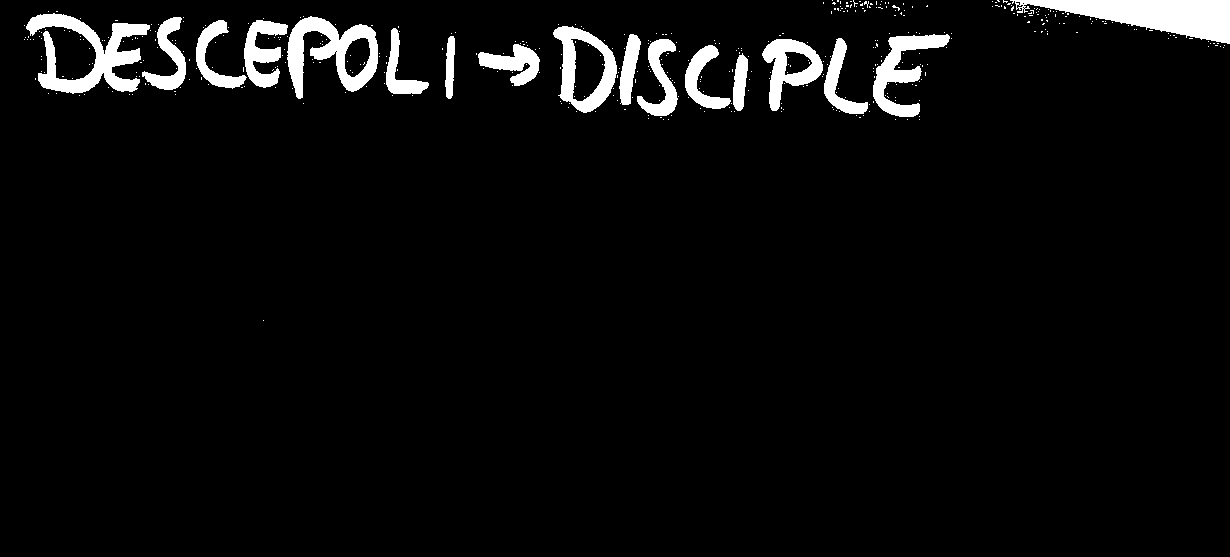 DESCEPOLI → DISCIPLE